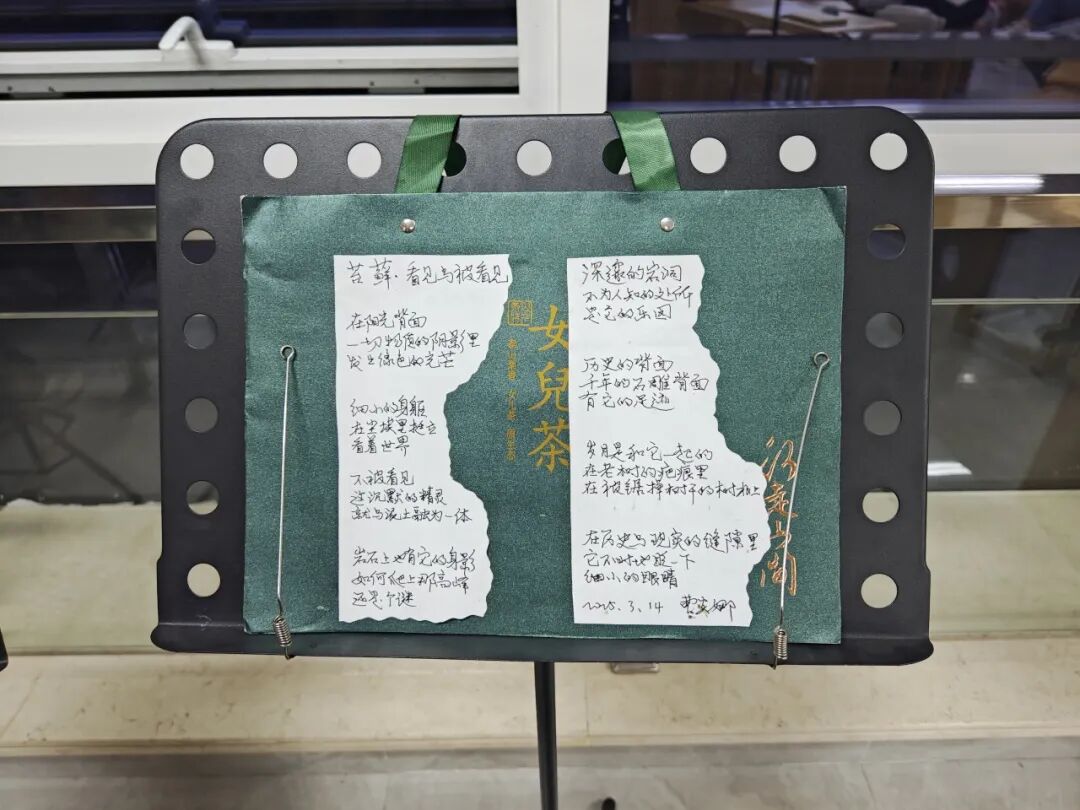 苔藓·看见与被看见
在阳光背面
一切物质的阴影里
发出绿色的光芒
细小的身躯
在尘埃里挺立
看着世界
不被看见
这沉默的精灵
就与泥土融为一体
岩石上也有它的身影
如何爬上那高峰
还是个谜
女兒茶
深邃的岩洞
不为人知的处所
是它的乐园
历史的背面
千年的石雕背面
有它的足迹
岁月是和它一起的
在老树的疤痕里
在被锯掉树干的树桩上
在历史与现实的缝隙里
它不时地眨一下
细小的眼睛
2025.3.14